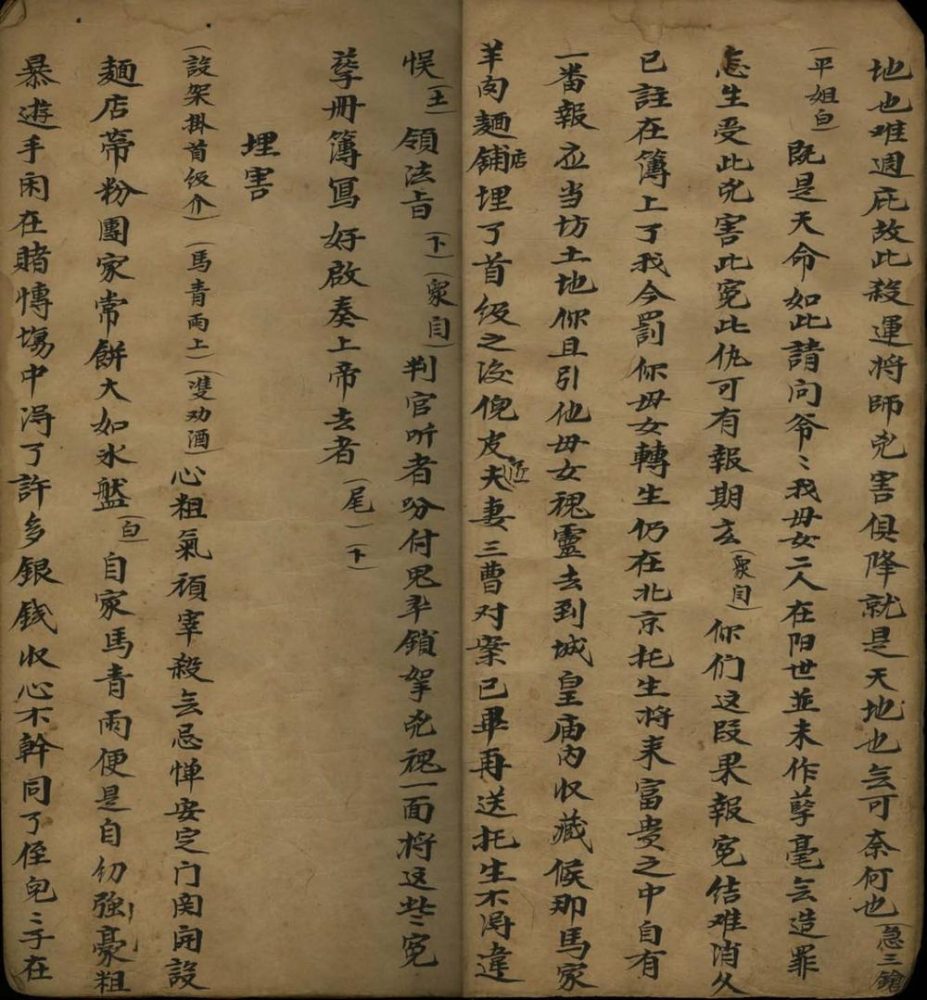 地也难迴庇故此殺運将師兇害俱降就是天地也无可奈何也(急三鎗)
(平姐白)既是天命如此請问爷〻我毋女二人在阳世並未作孽毫无造罪
怎生受此兇害此寃此仇可有報期玄(衆自)你们这段果報寃结难消久
已註在簿上了我今罰你毋女轉生仍在北京托生将来富貴之中自有
一番報应当坊土地你且引他毋女魂靈去到城皇庙内収藏候那馬家
羊肉麺舖店埋了首级之後倪皮夫妻三曹对案已畢再送托生不淂違
悮(土)領法旨(下)(衆自)判官听者吩付鬼卒鎖拏兇魂一面将这些寃
孽册簿寫好啟奏上帝去者(尾)(下)
埋害
(設架掛首级介)(馬青雨上)(雙劝酒)心粗氣頑宰殺无忌惮安定门関開設
麺店帶粉團家常餅大如氷盤(白)自家馬青雨便是自幼強豪粗
暴遊手闲在賭愽塲中淂了許多銀銭収心不幹同了侄皃三子在